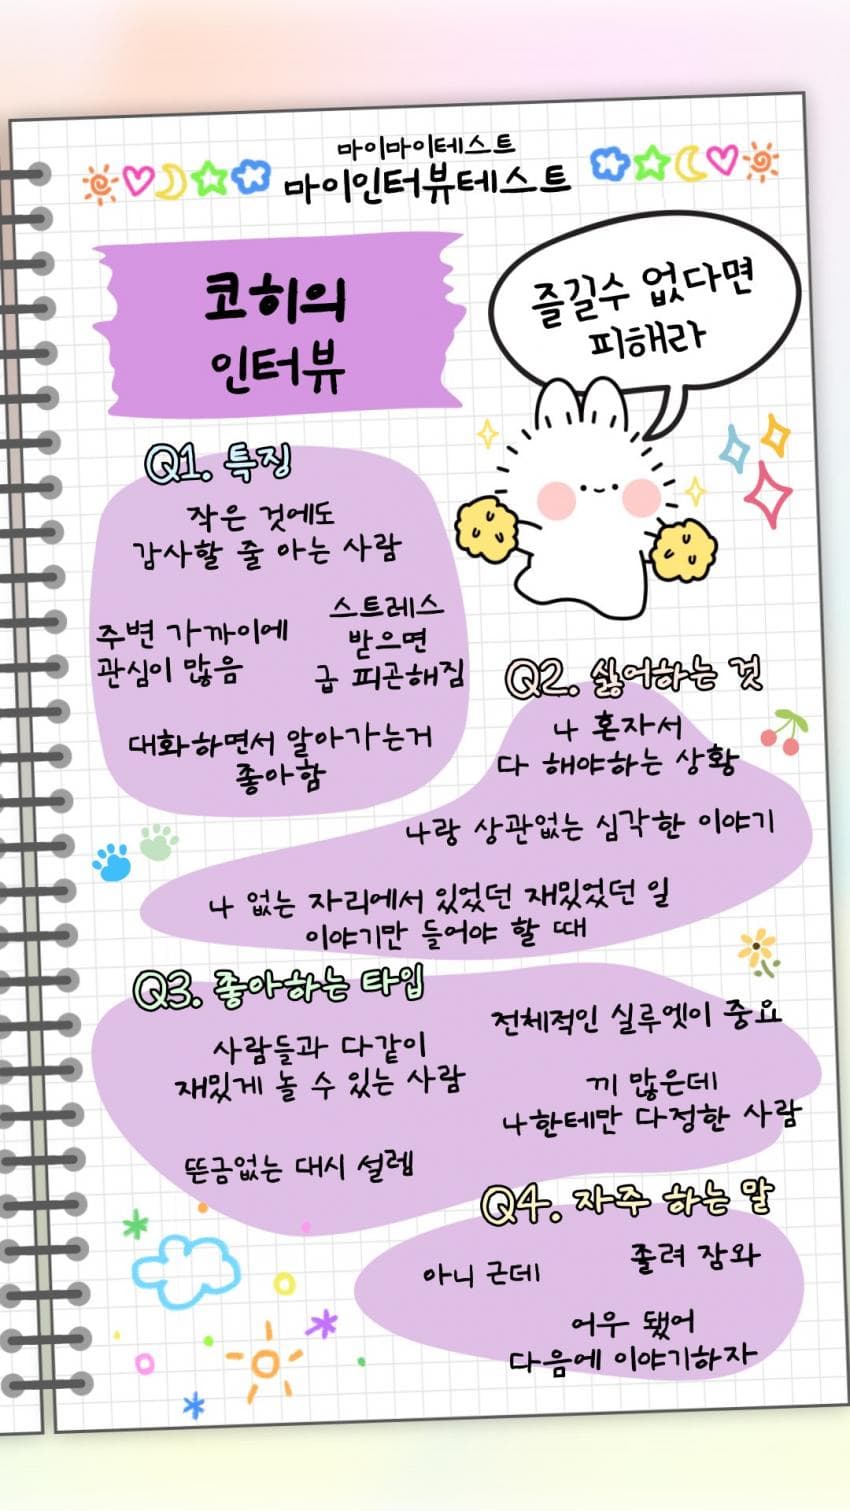 마이마이테스트
마이인터뷰테스트
코히의
인터뷰
즐길수 없다면
피해라
Q1. 특징
작은 것에도
감사할 줄 아는 사람
주변 가까이에
관심이 많음
스트레스
받으면
급 피곤해짐
대화하면서 알아가는거
좋아함
Q2. 싫어하는 것
나 혼자서
다 해야하는 상황
나랑 상관없는 심각한 이야기
나 없는 자리에서 있었던 재밌었던 일
이야기만 들어야 할 때
Q3. 좋아하는 타입
사람들과 다같이
재밌게 놀 수 있는 사람
전체적인 실루엣이 중요
끼 많은데
나한테만 다정한 사람
뜬금없는 대시 설렘
Q4. 자주 하는 말
아니 근데
졸려 잠와
어우 됐어
다음에 이야기하자